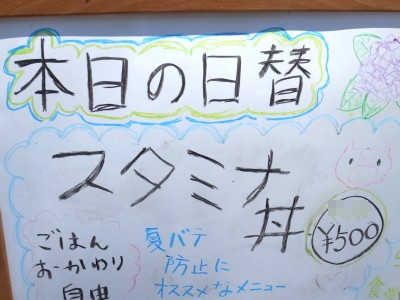 本日の日替
スタミナ
丼
¥500
ごはん
おかわり
自由
夏バテ
防止に
オススメなメニュー